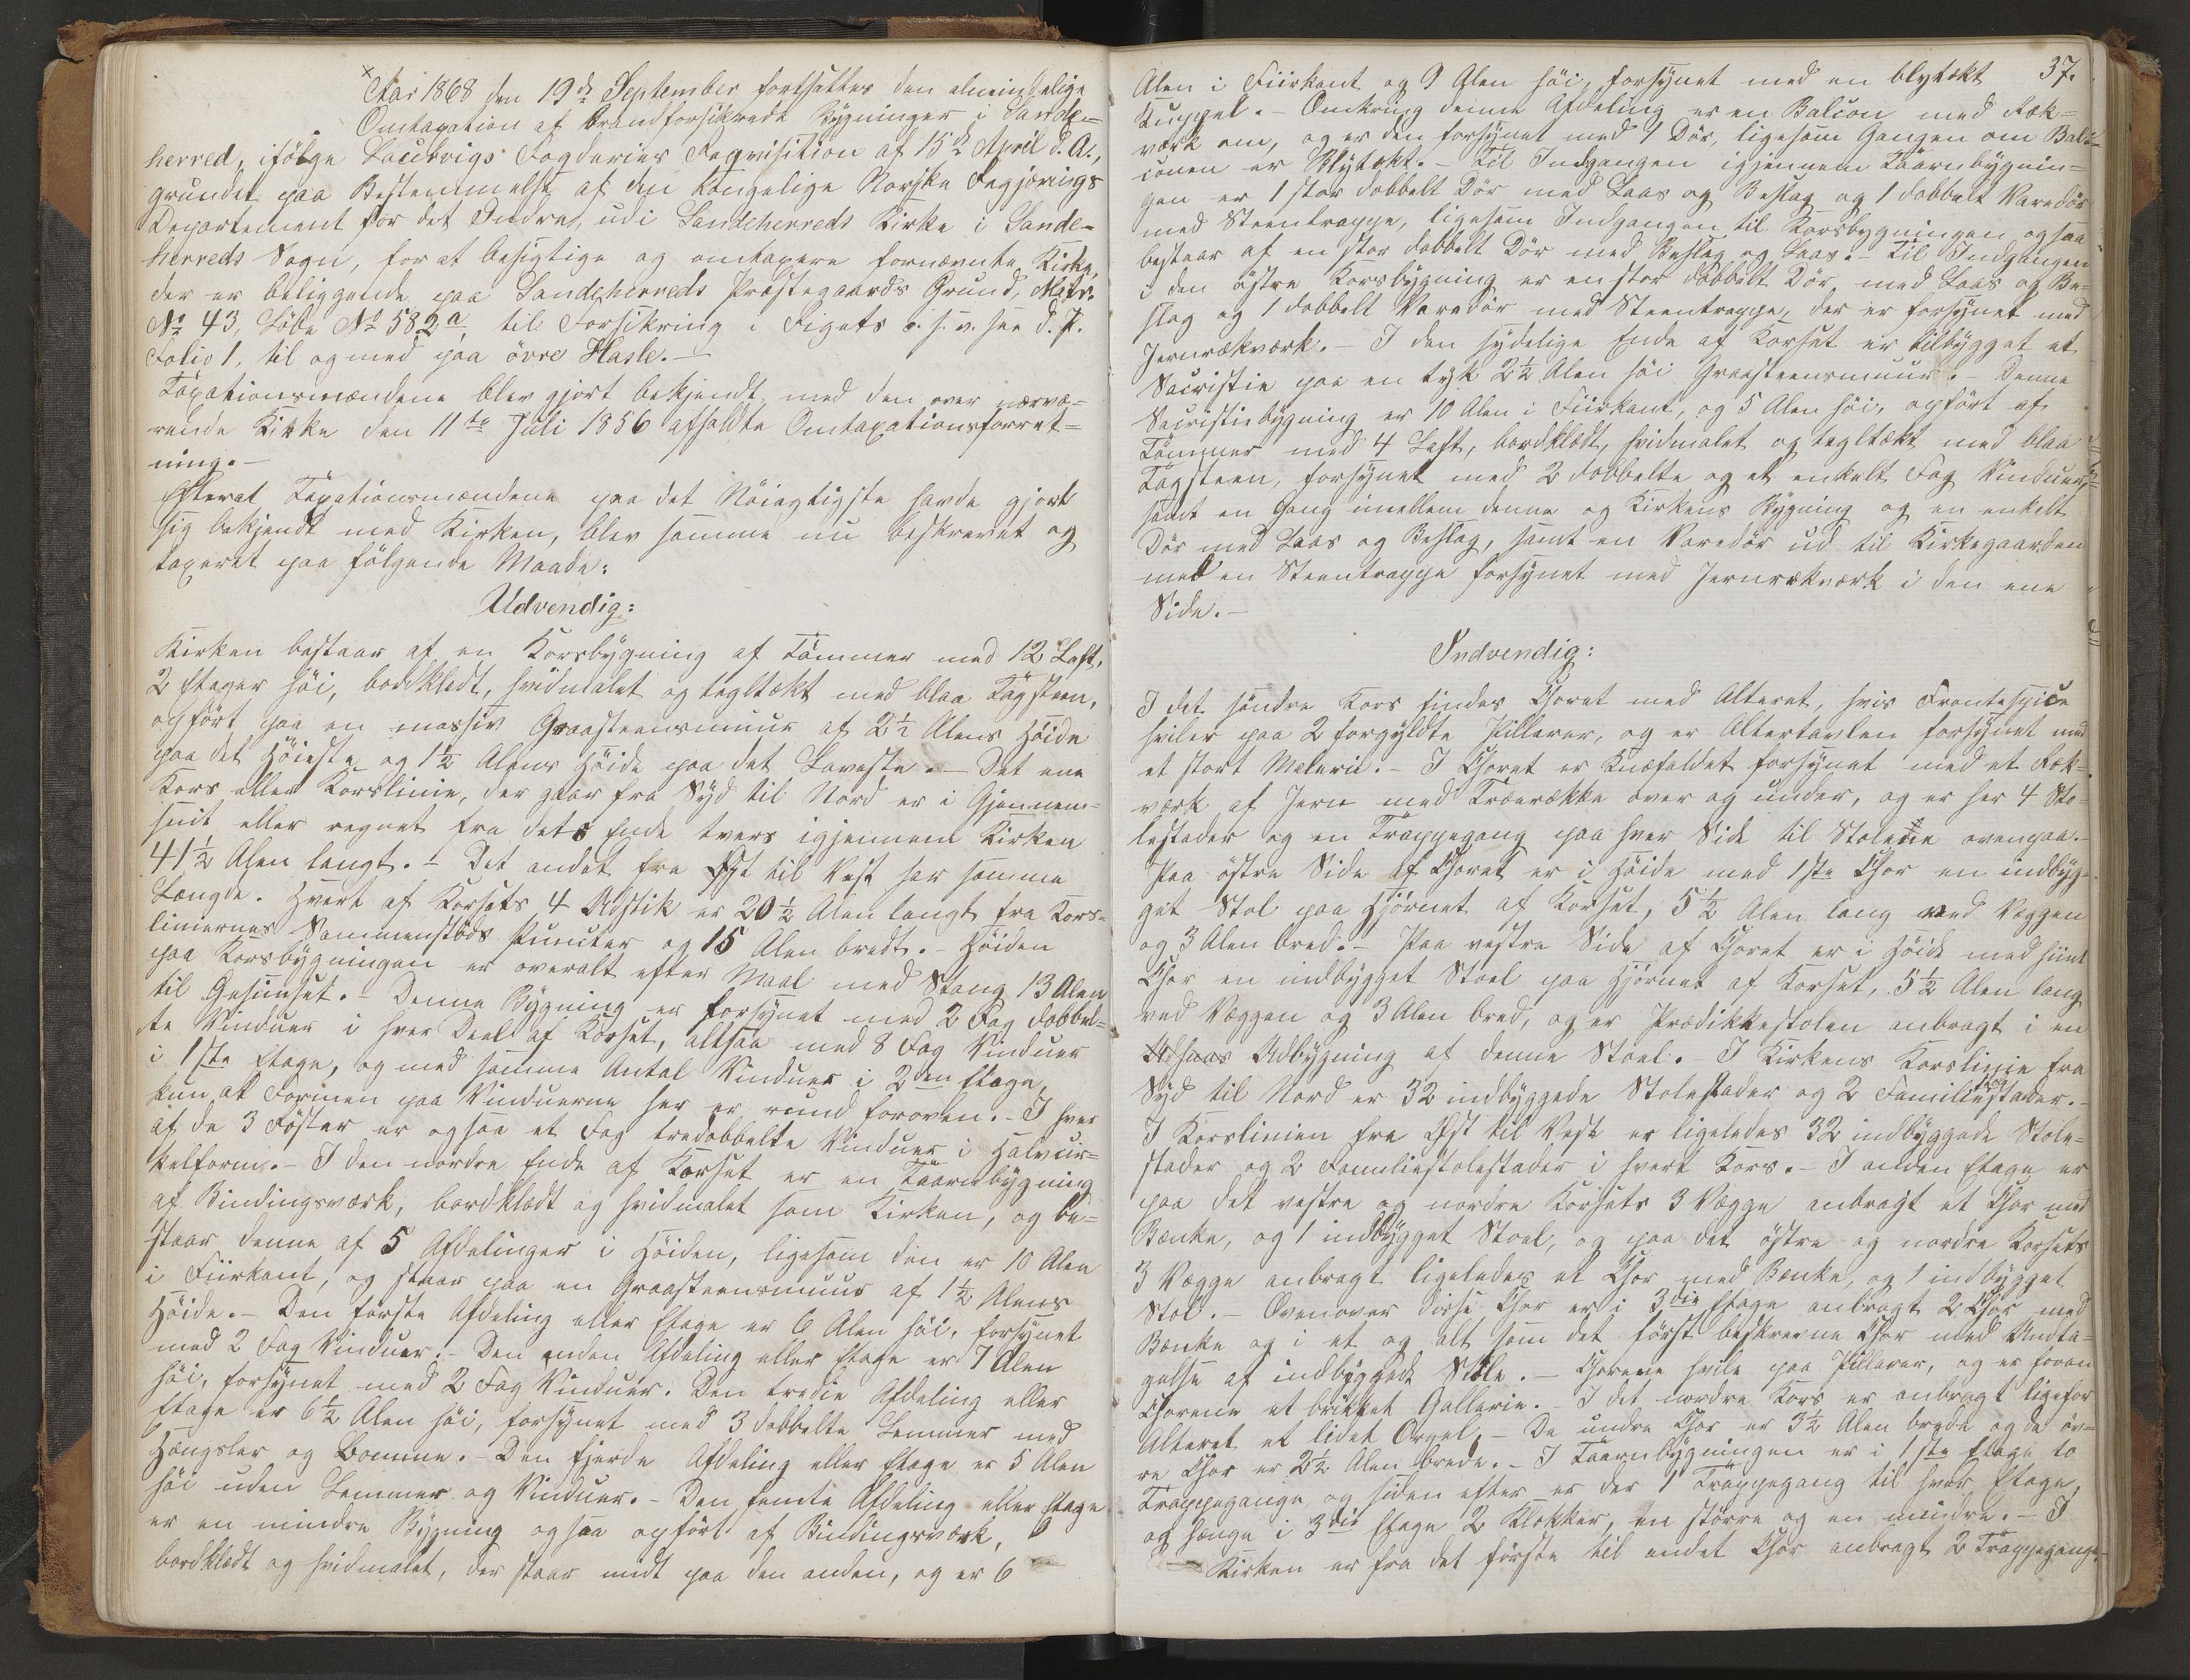 × Aar 1868 den 19de September fortsattes den almindelige
Omtaxation af brandforsikrede Bygninger i Sande-
herred, ifölge Laurvigs Fogderies Reqvisition af 15de April d. A.,
grundet paa Bestemmelse af den Kongelige Norske Regjerings
Departement for det Indre, udi Sandeherreds Kirke i Sande-
herreds Sogn, for at besigtige og omtaxere fornævnte Kirke,
der er beliggende paa Sandeherreds Præstegaards Grund, Matr:
No 43, Löbe No 582a, til Forsikring i Rigets o. s. v. see d. P.
Folio 1. til og med paa övre Hasle. —
Taxationsmændene blev gjort bekjendt med den over nærvæ-
rende Kirke den 11te Juli 1856 afholdte Omtaxationsforret-
ning. —
Efterat Taxationsmændene paa det Nöiagtigste havde gjort
sig bekjendt med Kirken, blev samme nu beskrevet og
taxeret paa fölgende Maade:
Udvendig:
Kirken bestaar af en Korsbygning af Tömmer med 12 Laft,
2 Etager höi, bordklædt, hvidmalet og tegltækt med blaa Tagsteen,
opfört paa en massiv Graasteensmuur af 2½ Alens Höide
paa det Höieste og 1½ Alens Höide paa det Laveste. — Det ene
Kors eller Korslinie, der gaar fra Syd til Nord er i Gjennem-
snit eller regnet fra dets Ende tvers igjennem Kirken
41½ Alen langt. — Det andet fra Öst til Vest har samme
Længde. Hvert af Korsets 4 er 20½ Alen langt fra Kors-
liniernes Sammenstöds Puncter og 15 Alen bredt. — Höiden
paa Korsbygningen er overalt efter Maal med Stang 13 Alen
til Gesimset. — Denne Bygning er forsynet med 2 Fag dobbel-
te Vinduer i hver Deel af Korset, altsaa med 8 Fag Vinduer
i 1ste Etage, og med samme Antal Vinduer i 2den Etage,
kun at Formen paa Vinduerne her er rund foroven. — I hver
af de 3 Röster er ogsaa et Fag tredobbelte Vinduer i Halvcir-
kelform. — I den nordre Ende af Korset er en Taarnbygning
af Bindingsværk, bordklædt og hvidmalet som Kirken, og be-
staar denne af 5 Afdelinger i Höiden, ligesom den er 10 Alen
i Fiirkant, og staar paa en Graasteensmuur af 1½ Alens
Höide. — Den förste Afdeling eller Etage er 6 Alen höi, forsynet
med 2 Fag Vinduer. — Den anden Afdeling eller Etage er 7 Alen
höi, forsynet med 2 Fag Vinduer. Den tredie Afdeling eller
Etage er 6½ Alen höi, forsynet med 3 dobbelte Lemmer med
Hængsler og Bomme. — Den fjerde Afdeling eller Etage er 5 Alen
höi uden Lemmer og Vinduer. — Den femte Afdeling eller Etage
er en mindre Bygning ogsaa opfört af Bindingsværk,
bordklædt og hvidmalet, der staar midt paa den anden, og er 6
37.
Alen i Fiirkant og 9 Alen höi, forsynet med en blytækt
Kuppel. — Omkring denne Afdeling er en Balcon med Ræk-
værk om, og er den forsynet med 1 Dör, ligesom Gangen om Bal-
conen er Blytækt. — Til Indgangen igjennem Taarnbygnin-
gen er 1 stor dobbelt Dör med Laas og Beslag og 1 dobbelt Varedör
med Steentrappe, ligesom Indgangen til Korsbygningen ogsaa
bestaar af en stor dobbelt Dör med Beslag og Laas. — Til Indgangen
i den östre Korsbygning er en stor dobbelt Dör med Laas og Be-
slag og 1 dobbelt Varedör med Steentrappe, der er forsynet med
Jernrækværk. — I den sydelige Ende af Korset er tilbygget et
Sacristie paa en tyk 2½ Alen höi Graasteensmuur. — Denne
Sacristiebygning er 10 Alen i Fiirkant, og 5 Alen höi, opfört af
Tömmer med 4 Laft, bordklædt, hvidmalet og tegltækt med blaa
Tagsteen, forsynet med 2 dobbelte og et enkelt Fag Vinduer,
samt en Gang imellem denne og Kirkens Bygning og en enkelt
Dör med Laas og Beslag, samt en Varedör ud til Kirkegaarden
med en Steentrappe forsynet med Jernrækværk i den ene
Side. —
Indvendig:
I det söndre Kors findes Choret med Alteret, hvis Frontespice
hviler paa 2 forgyldte Pillarer, og er Altertavlen forsynet med
et stort Malerie. — I Choret er Knæfaldet forsynet med et Ræk-
værk af Jern med Trærække over og under, og er her 4 Sto-
lestader og en Trappegang paa hver Side til Stolene ovenpaa. —
Paa östre Side af Choret er i Höide med 1ste Chor en indbyg-
get Stol paa Hjörnet af Korset, 5½ Alen lang ved Væggen
og 3 Alen bred. — Paa vestre Side af Choret er i Höide med hiint
Chor en indbygget Stoel paa Hjörnet af Korset, 5½ Alen lang
ved Væggen og 3 Alen bred, og er Prædikkestolen anbragt i en
Udbygning af denne Stoel. — I Kirkens Korslinie fra
Syd til Nord er 32 indbyggede Stolestader og 2 Familiestader. —
I Korslinien fra Öst til Vest er ligeledes 32 indbyggede Stole-
stader og 2 Familiestolestader i hvert Kors. — I anden Etage er
paa det vestre og nordre Korsets 3 Vægge anbragt et Chor med
Bænke, og 1 indbygget Stoel, og paa det östre og nordre Korsets
3 Vægge anbragt ligeledes et Chor med Bænke, og 1 indbygget
Stol. — Ovenover disse Chor er i 3die Etage anbragt 2 Chor med
Bænke og i et og alt som det först beskrevne Chor med Undta-
gelse af indbyggede Stole. — Chorene hvile paa Pillarer, og er foran
Chorene et Gallerie. — I det nordre Kors er anbragt ligefor
Alteret et lidet Orgel. — De undre Chor er 3½ Alen brede og de öv-
re Chor er 2½ Alen brede. — I Taarnbygningen er i 1ste Etage to
Trappegange og siden efter er der 1 Trappegang til hver Etage,
og hænge i 3die Etage 2 Klokker, en större og en mindre. — I
Kirken er fra det förste til andet Chor anbragt 2 Trappegange,